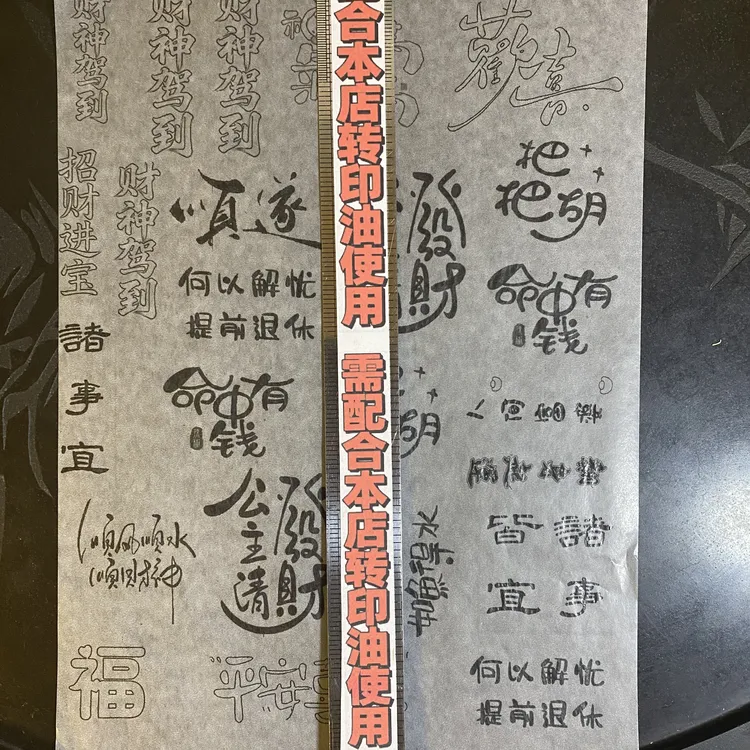 财神驾到
财神驾到
财神驾到
招财进宝
财神驾到
順遂
何以解忧
提前退休
諸
事
宜
命中有
钱
公主請
發財
順風順水
順財神
福
平安
合本店转印油使用
需配合本店转印油使用
發財
胡
如魚得水
歡喜
把
把胡
命中有
钱
人间富贵
皆諧
宜事
何以解忧
提前退休